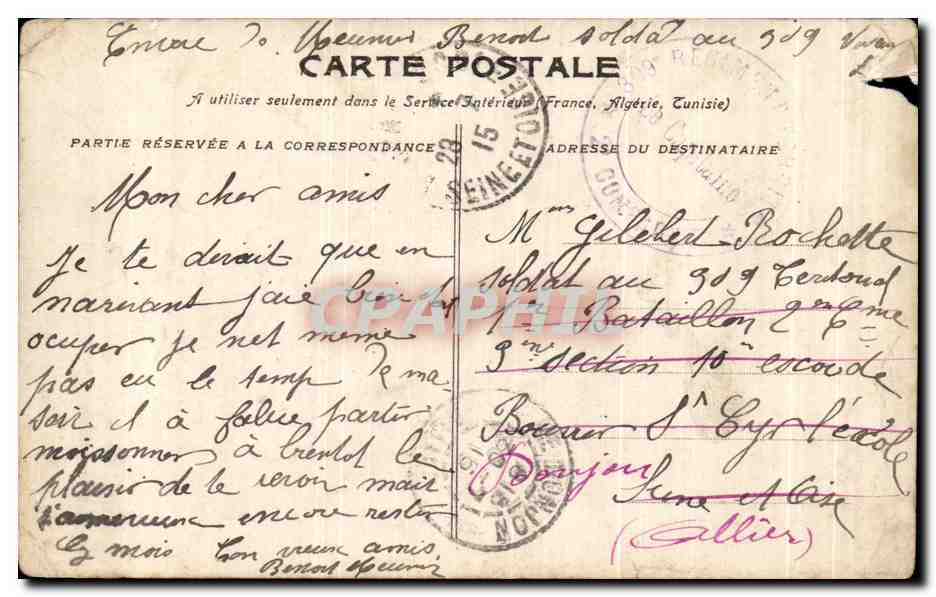 Meunier Benoit soldat au 309
CARTE POSTALE
A utiliser seulement dans le Service Intérieur (France, Algérie, Tunisie)
PARTIE RÉSERVÉE A LA CORRESPONDANCE
ADRESSE DU DESTINATAIRE
28 15
SEINE ET OISE
309 REGIM
2 COM
Mon cher amis
je te dirait que en
narivant jaie bien
ocuper je net meme
pas eu le temp de ma
soir il à falue partir
moissonner à bientot le
plaisir de te revoir mait
encore rester
mois ton vieux amis
Benoit Meunier
Gilebert Rochette
soldat au 309 Teritorial
1er Bataillon 2em Cme
3eme section 10e escoude
St Cyr l'école
Seine et Oise
Donjon
(Allier)
DONJON
CPAPHIL